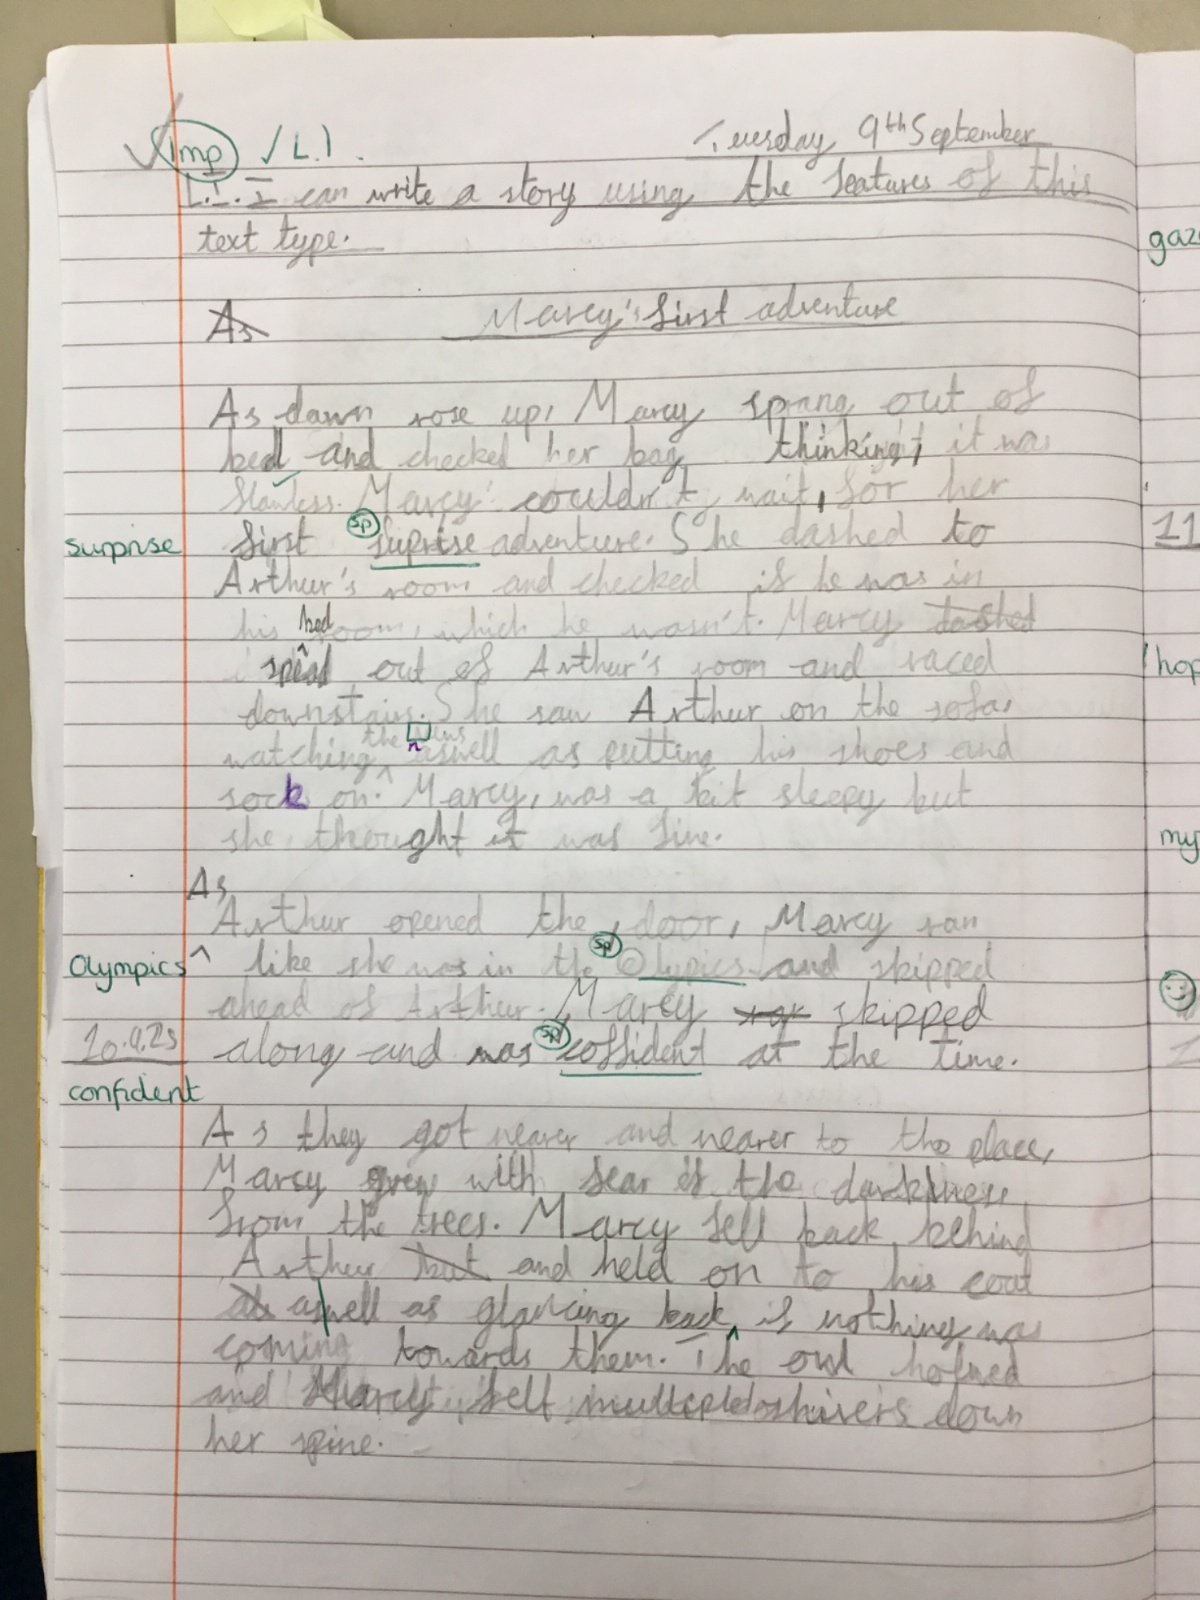 Imp ✓ L.I.
Tuesday 9th September
L.I. I can write a story using the features of this
text type.
As
Marcy's first adventure
As dawn rose up, Marcy sprang out of
bed and checked her bag thinking, it was
flawless. Marcy couldn't wait, for her
surprise first sp suprise adventure. She dashed to
Arthur's room and checked if he was in
his bed room, which he wasn't. Marcy dashed
out of Arthur's room and raced
downstairs. She saw Arthur on the sofa,
watching the news aswell as putting his shoes and
sock on. Marcy, was a bit sleepy but
she thought it was fine.
As
Arthur opened the door, Marcy ran
Olympics like she was in the sp Olypics and skipped
ahead of Arthur. Marcy skipped
10.9.25 along and was sp coffident at the time.
confident
As they got nearer and nearer to the place,
Marcy grew with fear if the darkness
from the trees. Marcy fell back behind
Arthur but and held on to his coat
aswell as glancing back if nothing was
coming towards them. The owl
and Marcy felt multiple shivers down
her spine.
gaz
11
hop
my